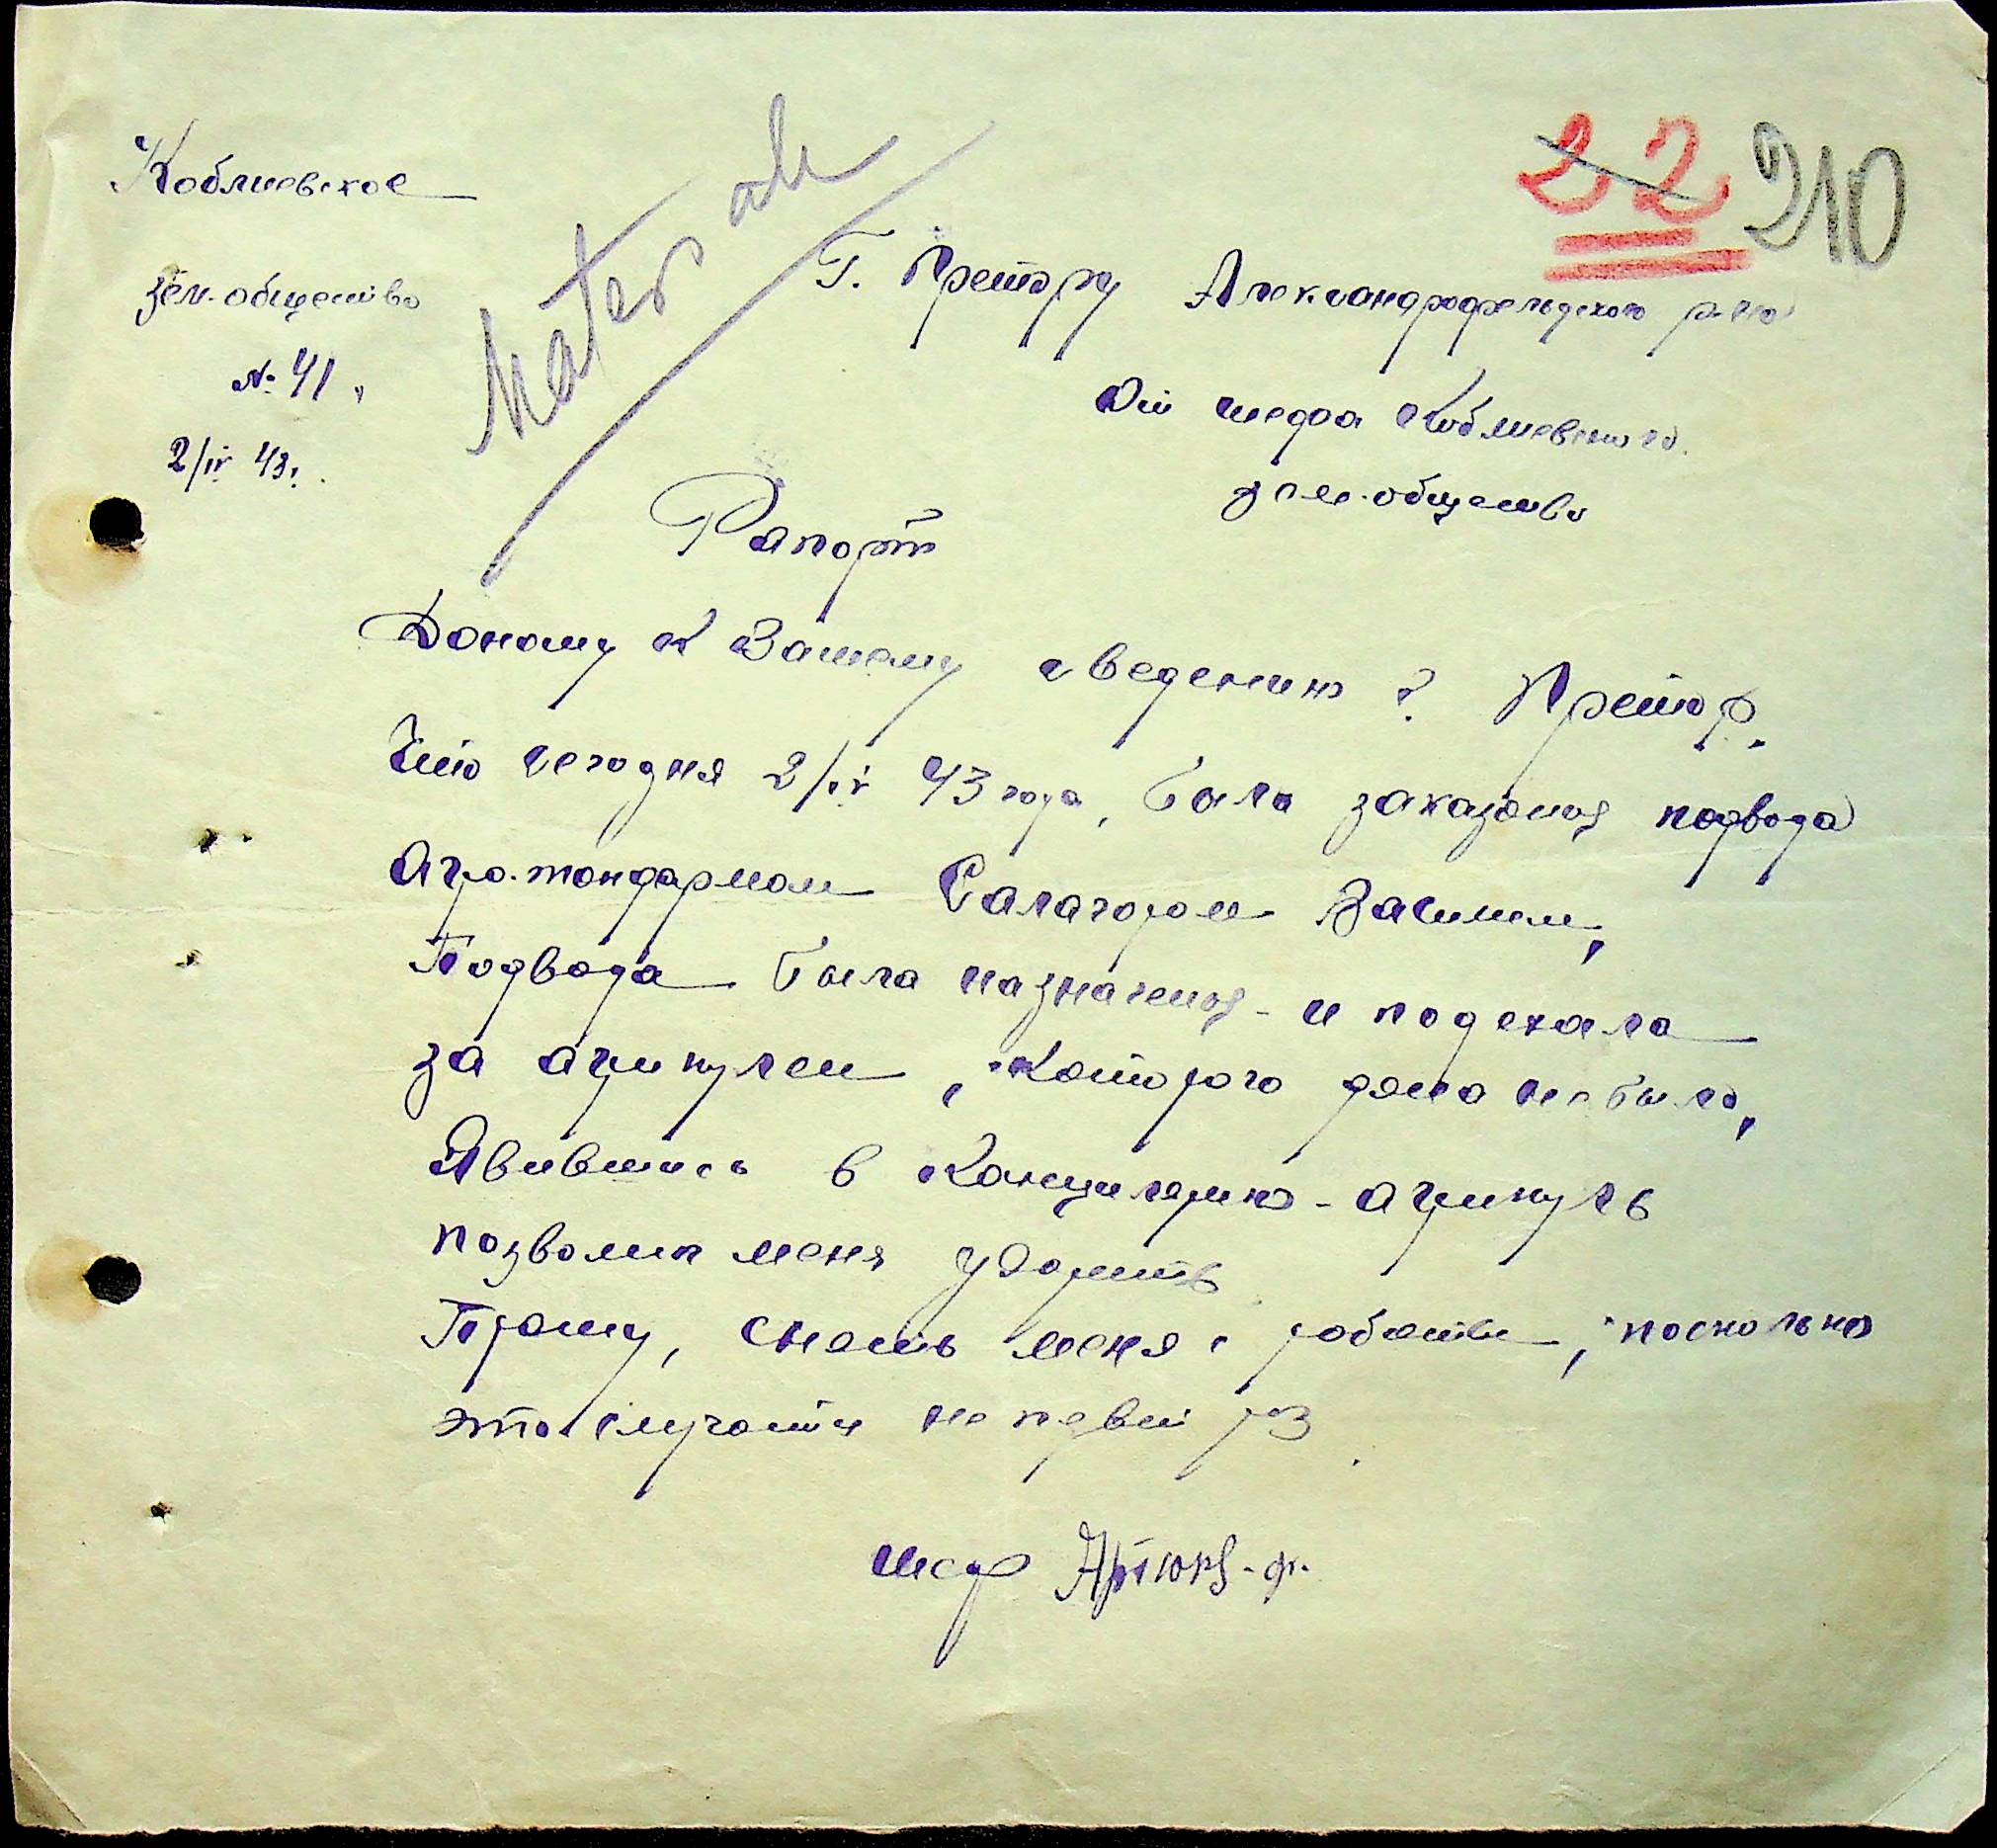 Коблиевское
зем. общество
№ 41
2/IV 43г.
22 210
Г. Претору Александрофельдского р-на
От шефа Коблиевского
зем. общества
Рапорт
Доношу к Вашему сведению Г. Претор.
Что сегодня 2/IV 43 года, была заказана подвода
Агро-жандармом
Подвода была назначена и подехала
за агрикулем, которого дома не было,
Явившись в Канцилярию - агрикуль
позволил меня ударить
Прошу, снять меня с работы, поскольно
это случается не первый раз
Шеф